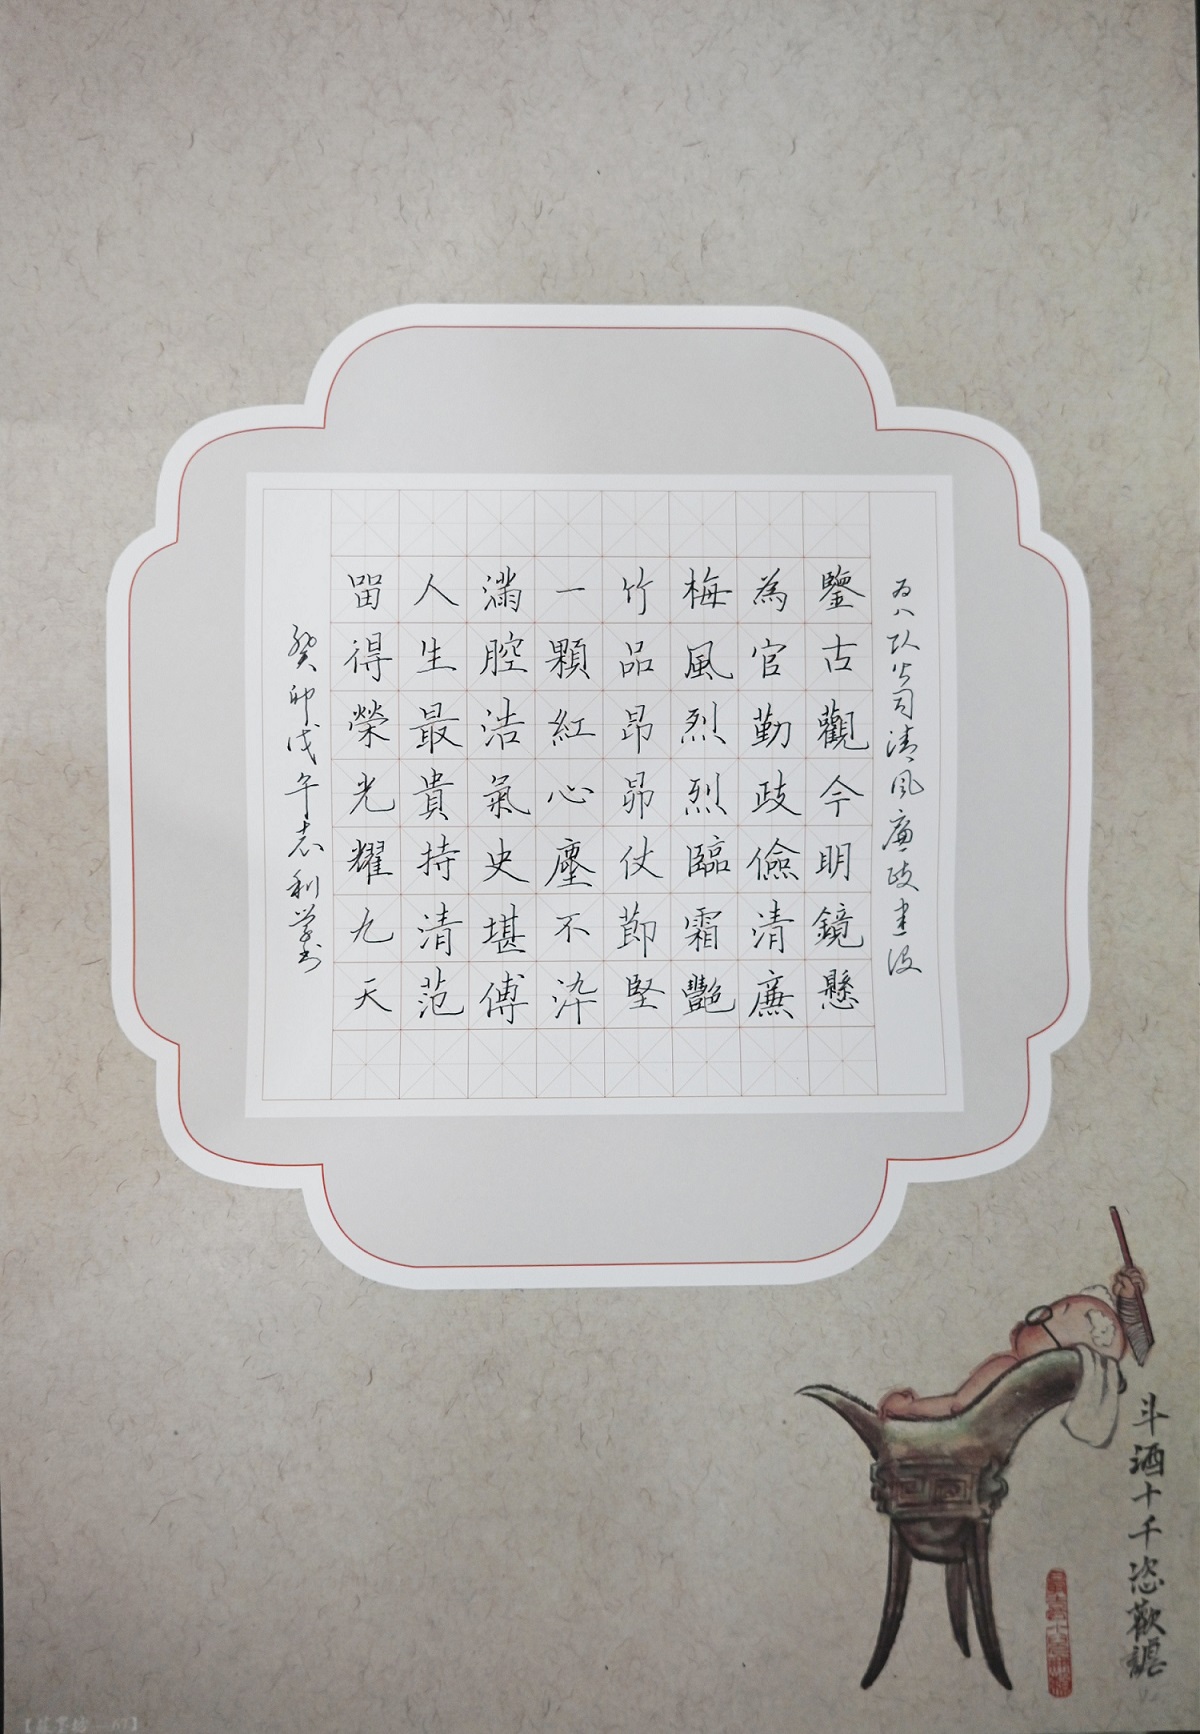 为八队公司清风廉政建设
鑒古觀今明鏡懸
為官勤政儉清廉
梅風烈烈臨霜艷
竹品昂昂仗節堅
一顆紅心塵不染
滿腔浩氣史堪傳
人生最貴持清范
留得榮光耀九天
癸卯戊午志利学书
斗酒十千恣歡謔